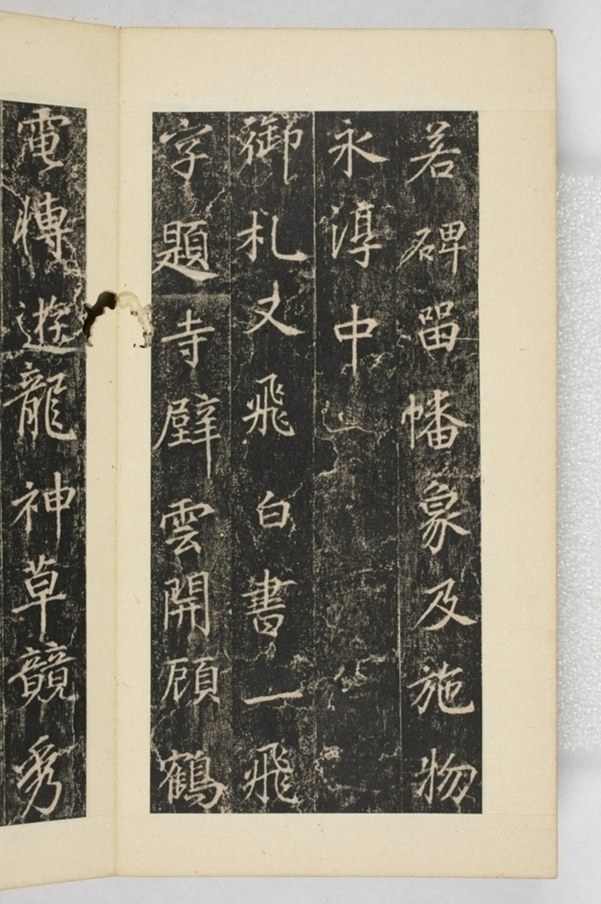 若碑畱幡象及施物
永淳中
御札又飛白書一飛
字題寺壁雲開顧鶴
電轉遊龍神草競秀